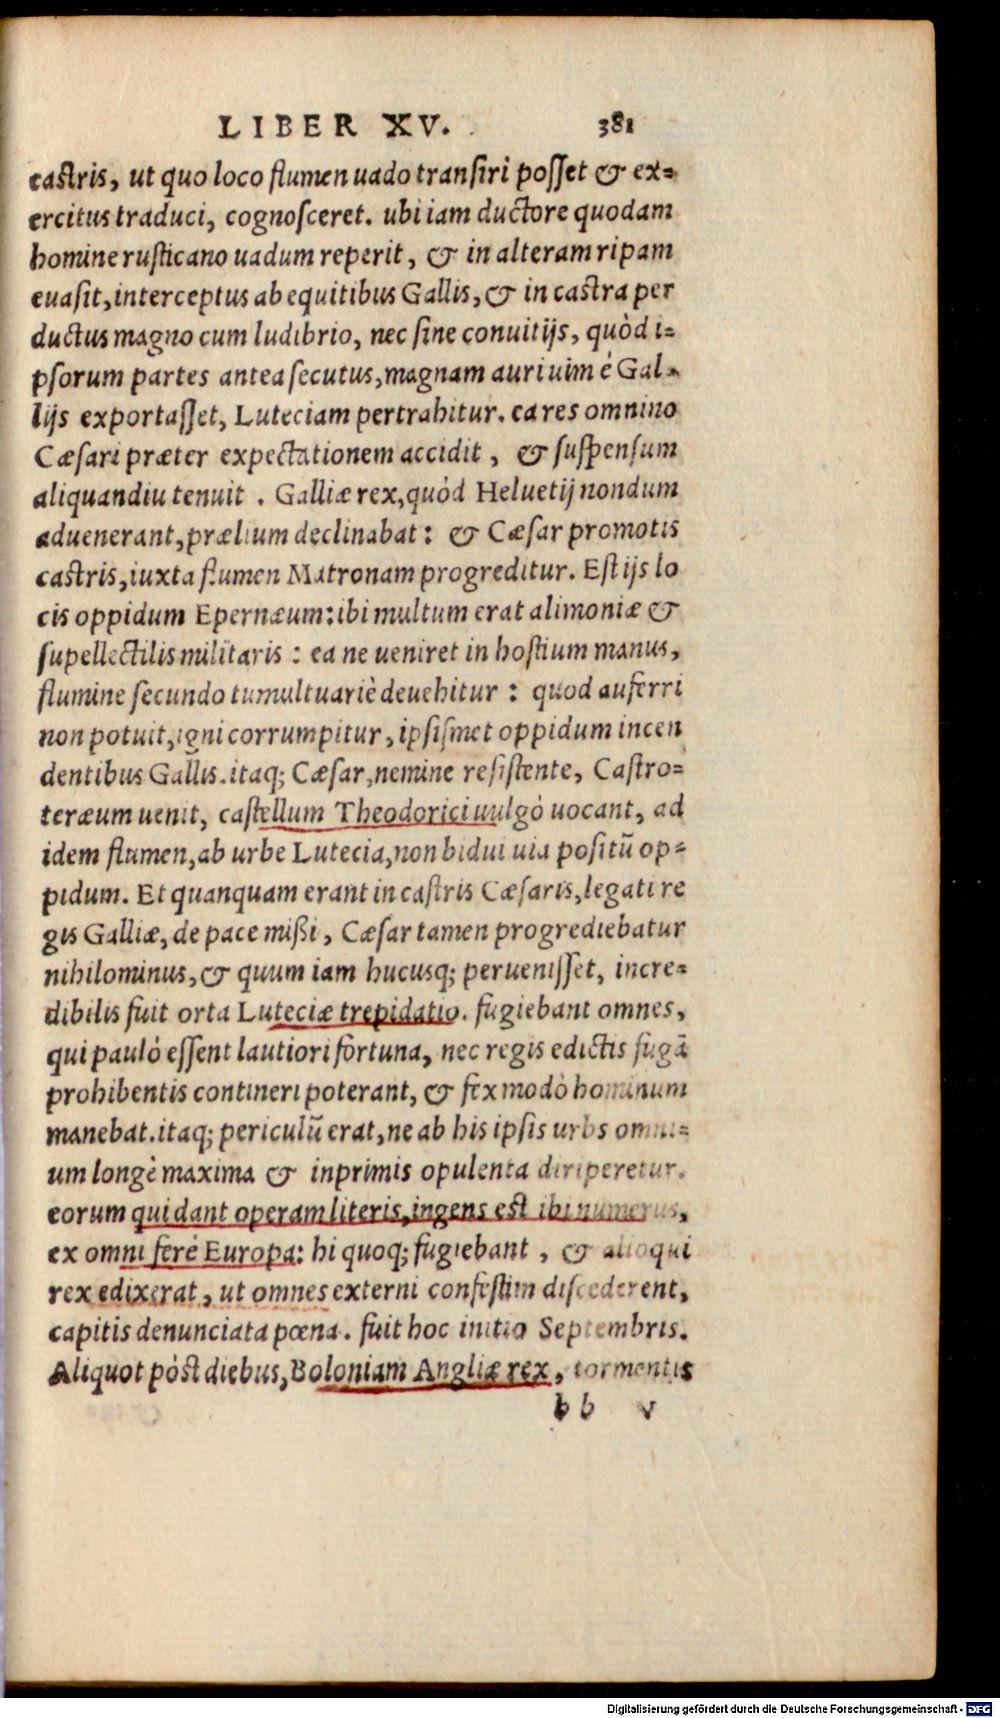 LIBER XV. 381
castris, ut quo loco flumen uado transiri posset & ex=
ercitus traduci, cognosceret. ubi iam ductore quodam
homine rusticano uadum reperit, & in alteram ripam
euasit, interceptus ab equitibus Gallis, & in castra per
ductus magno cum ludibrio, nec sine conuitijs, quòd i=
psorum partes antea secutus, magnam auri uim è Gal=
lijs exportasset, Luteciam pertrahitur. ea res omnino
Cæsari præter expectationem accidit, & suspensum
aliquandiu tenuit. Galliæ rex, quòd Heluetij nondum
aduenerant, prælium declinabat: & Cæsar promotis
castris, iuxta flumen Matronam progreditur. Est ijs lo
cis oppidum Epernæum: ibi multum erat alimoniæ &
supellectilis militaris: ea ne ueniret in hostium manus,
flumine secundo tumultuariè deuehitur: quod auferri
non potuit, igni corrumpitur, ipsismet oppidum incen
dentibus Gallis. itaq; Cæsar, nemine resistente, Castro=
teræum uenit, castellum Theodorici uulgò uocant, ad
idem flumen, ab urbe Lutecia, non bidui uia positū op=
pidum. Et quanquam erant in castris Cæsaris, legati re
gis Galliæ, de pace mißi, Cæsar tamen progrediebatur
nihilominus, & quum iam hucusq; peruenisset, incre=
dibilis fuit orta Luteciæ trepidatio. fugiebant omnes,
qui paulò essent lautiori fortuna, nec regis edictis fugā
prohibentis contineri poterant, & fex modò hominum
manebat. itaq; periculū erat, ne ab his ipsis urbs omni=
um longè maxima & inprimis opulenta diriperetur.
eorum qui dant operam literis, ingens est ibi numerus,
ex omni ferè Europa: hi quoq; fugiebant, & alioqui
rex edixerat, ut omnes externi confestim discederent,
capitis denunciata pœna. fuit hoc initio Septembris.
Aliquot pòst diebus, Boloniam Angliæ rex, tormentis
bb v
Digitalisierung gefördert durch die Deutsche Forschungsgemeinschaft - DFG